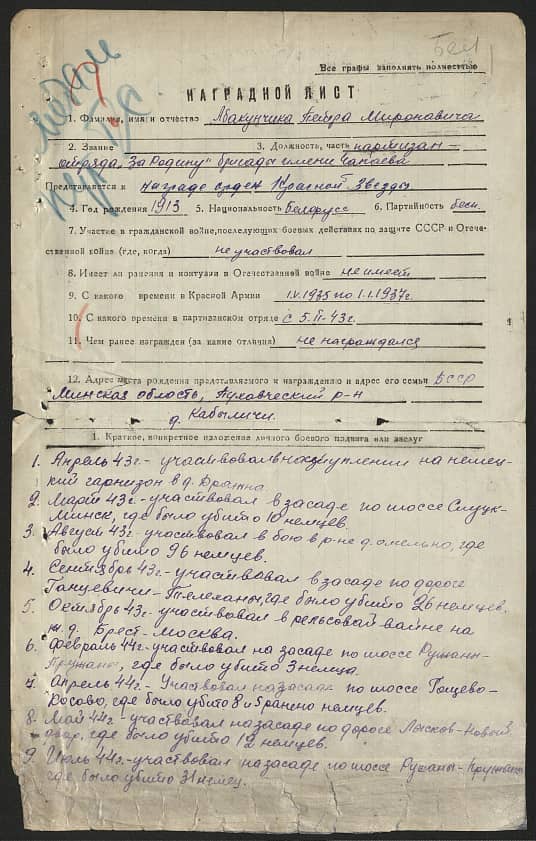 Бел
Все графы заполнять полностью
НАГРАДНОЙ ЛИСТ
1. Фамилия, имя и отчество Абакунчика Петра Мироновича
2. Звание 3. Должность, часть партизан –
отряда „За Родину" бригады имени Чапаева
Представляется к награде орден Красной Звезды
4. Год рождения 1913 5. Национальность Белорусс 6. Партийность бесп.
7. Участие в гражданской войне, последующих боевых действиях по защите СССР и Отече-
ственной войне (где, когда) не участвовал
8. Имеет ли ранения и контузии в Отечественной войне не имеет
9. С какого времени в Красной Армии 1.V.1935 по 1.I.1937г.
10. С какого времени в партизанском отряде с 5.II-43г.
11. Чем ранее награжден (за какие отличия) не награждался
12. Адрес места рождения представляемого к награждению и адрес его семьи БССР
Минская область, Пуховический р-н
д. Кабыличи.
1. Краткое, конкретное изложение личного боевого подвига или заслуг
1. Апрель 43г.- участвовал в наступлении на немец-
кий гарнизон в д. Братна.
2. Март 43г.- участвовал в засаде по шоссе Слуцк-
Минск, где было убито 10 немцев.
3. Август 43г.- участвовал в бою в р-не д. Омельно, где
было убито 96 немцев.
4. Сентябрь 43г.- участвовал в засаде по дороге
Ганцевичи-Телеханы, где было убито 26 немцев.
5. Октябрь 43г.- участвовал в рельсовой войне на
ж.д. Брест-Москва.
6. Февраль 44г.- участвовал на засаде по шоссе Ружаны-
Пружаны, где было убито 3 немца.
7. Апрель 44г.- Участвовал на засаде по шоссе Гощево-
Косово, где было убито 8 и 5 ранено немцев.
8. Май 44г.- участвовал на засаде по дороге Лысков-Новый
двор, где было убито 12 немцев.
9. Июль 44г.- участвовал на засаде по шоссе Ружаны-Пружаны
где было убито 31 немец.